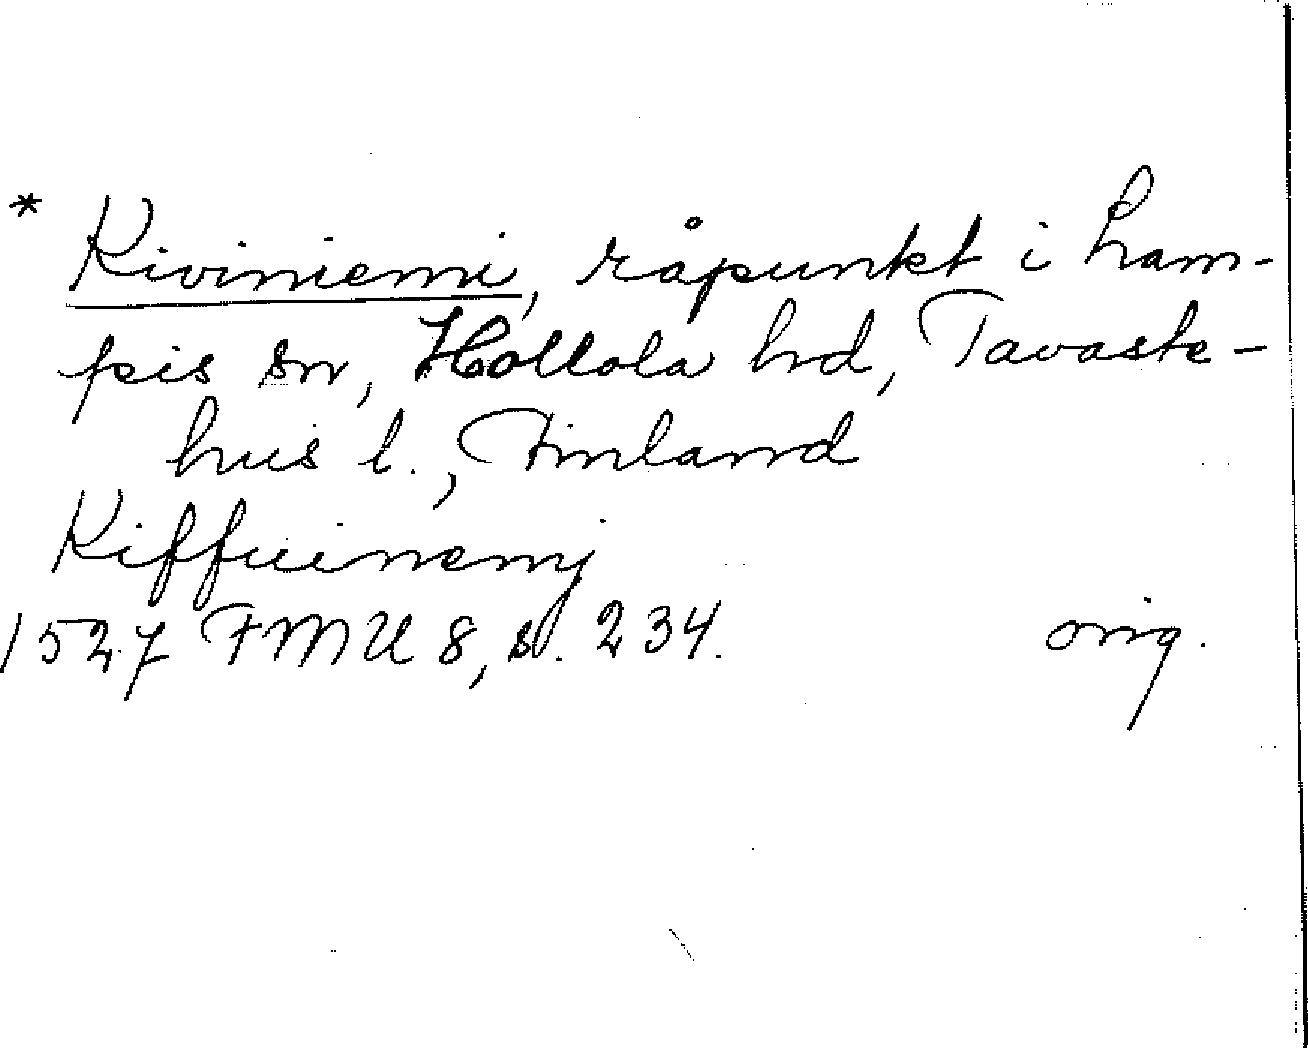 * Kiviniemi, råpunkt i Lam-
pis sn, Hollola hd, Tavaste-
hus l., Finland
Kiffuinemj
1527 FMU 8, s. 234. orig.